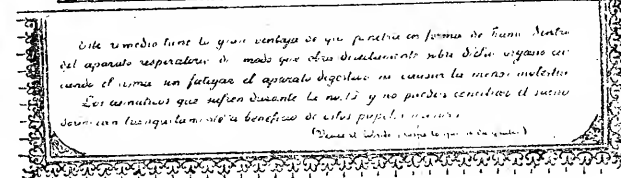 Este remedio tiene la gran ventaja de que penetra en forma de humo dentro
del aparato respiratorio de modo que obra directamente sobre dicho organo
el asma sin fatigar el aparato digestivo ni causar la menor molestia
Los asmaticos que sufren durante la noche y no pueden conciliar el sueño
tranquilamente a beneficio de estos papeles